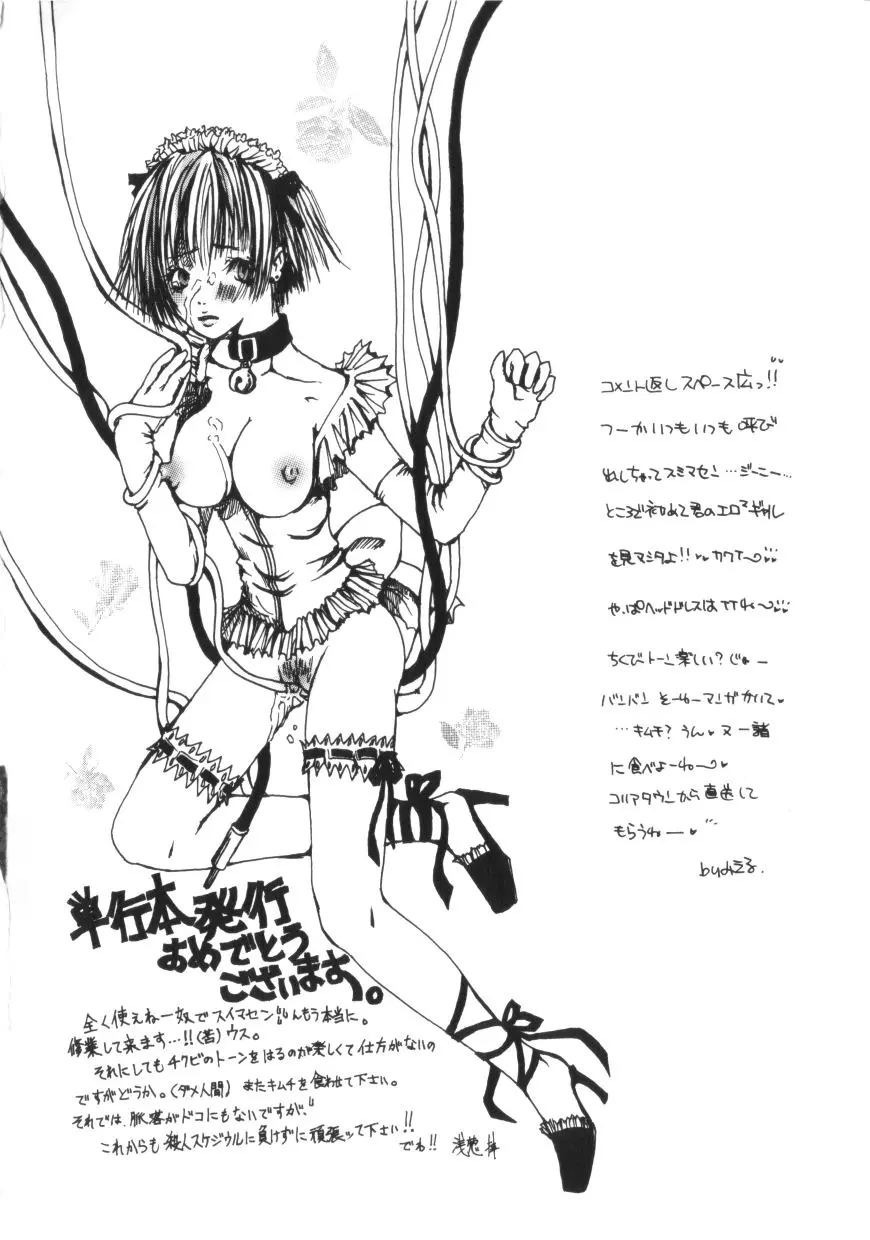 コメント返しスペース広っ!!
つーかいつもいつも呼び
出しちゃってスミマセン…ジーニー…
ところで初めて君のエロギャル
を見マシタよ!!♥カワイ〜♡
やっぱヘッドドレスはイイね〜♡
ちくびトーン楽しい?じゃー
バンバンそーゆーマンガかいて♥
…キムチ?うん♥又一諸
に食べよーね〜♡
コリアタウンから直送して
もらうねー♥
byみえる.
単行本発行
おめでとう
ございます。
全く使えねー奴でスイマセン〃んもう本当に。
修業して来ます…!!(苦)ウス。
それにしてもチクビのトーンをはるのが楽しくて仕方がないの
ですがどうか。(ダメ人間) またキムチを食わせて下さい。
それでは、脈絡がドコにもないですが、
これからも殺人スケジウルに負けずに頑張ッて下さい!!
でわ!!